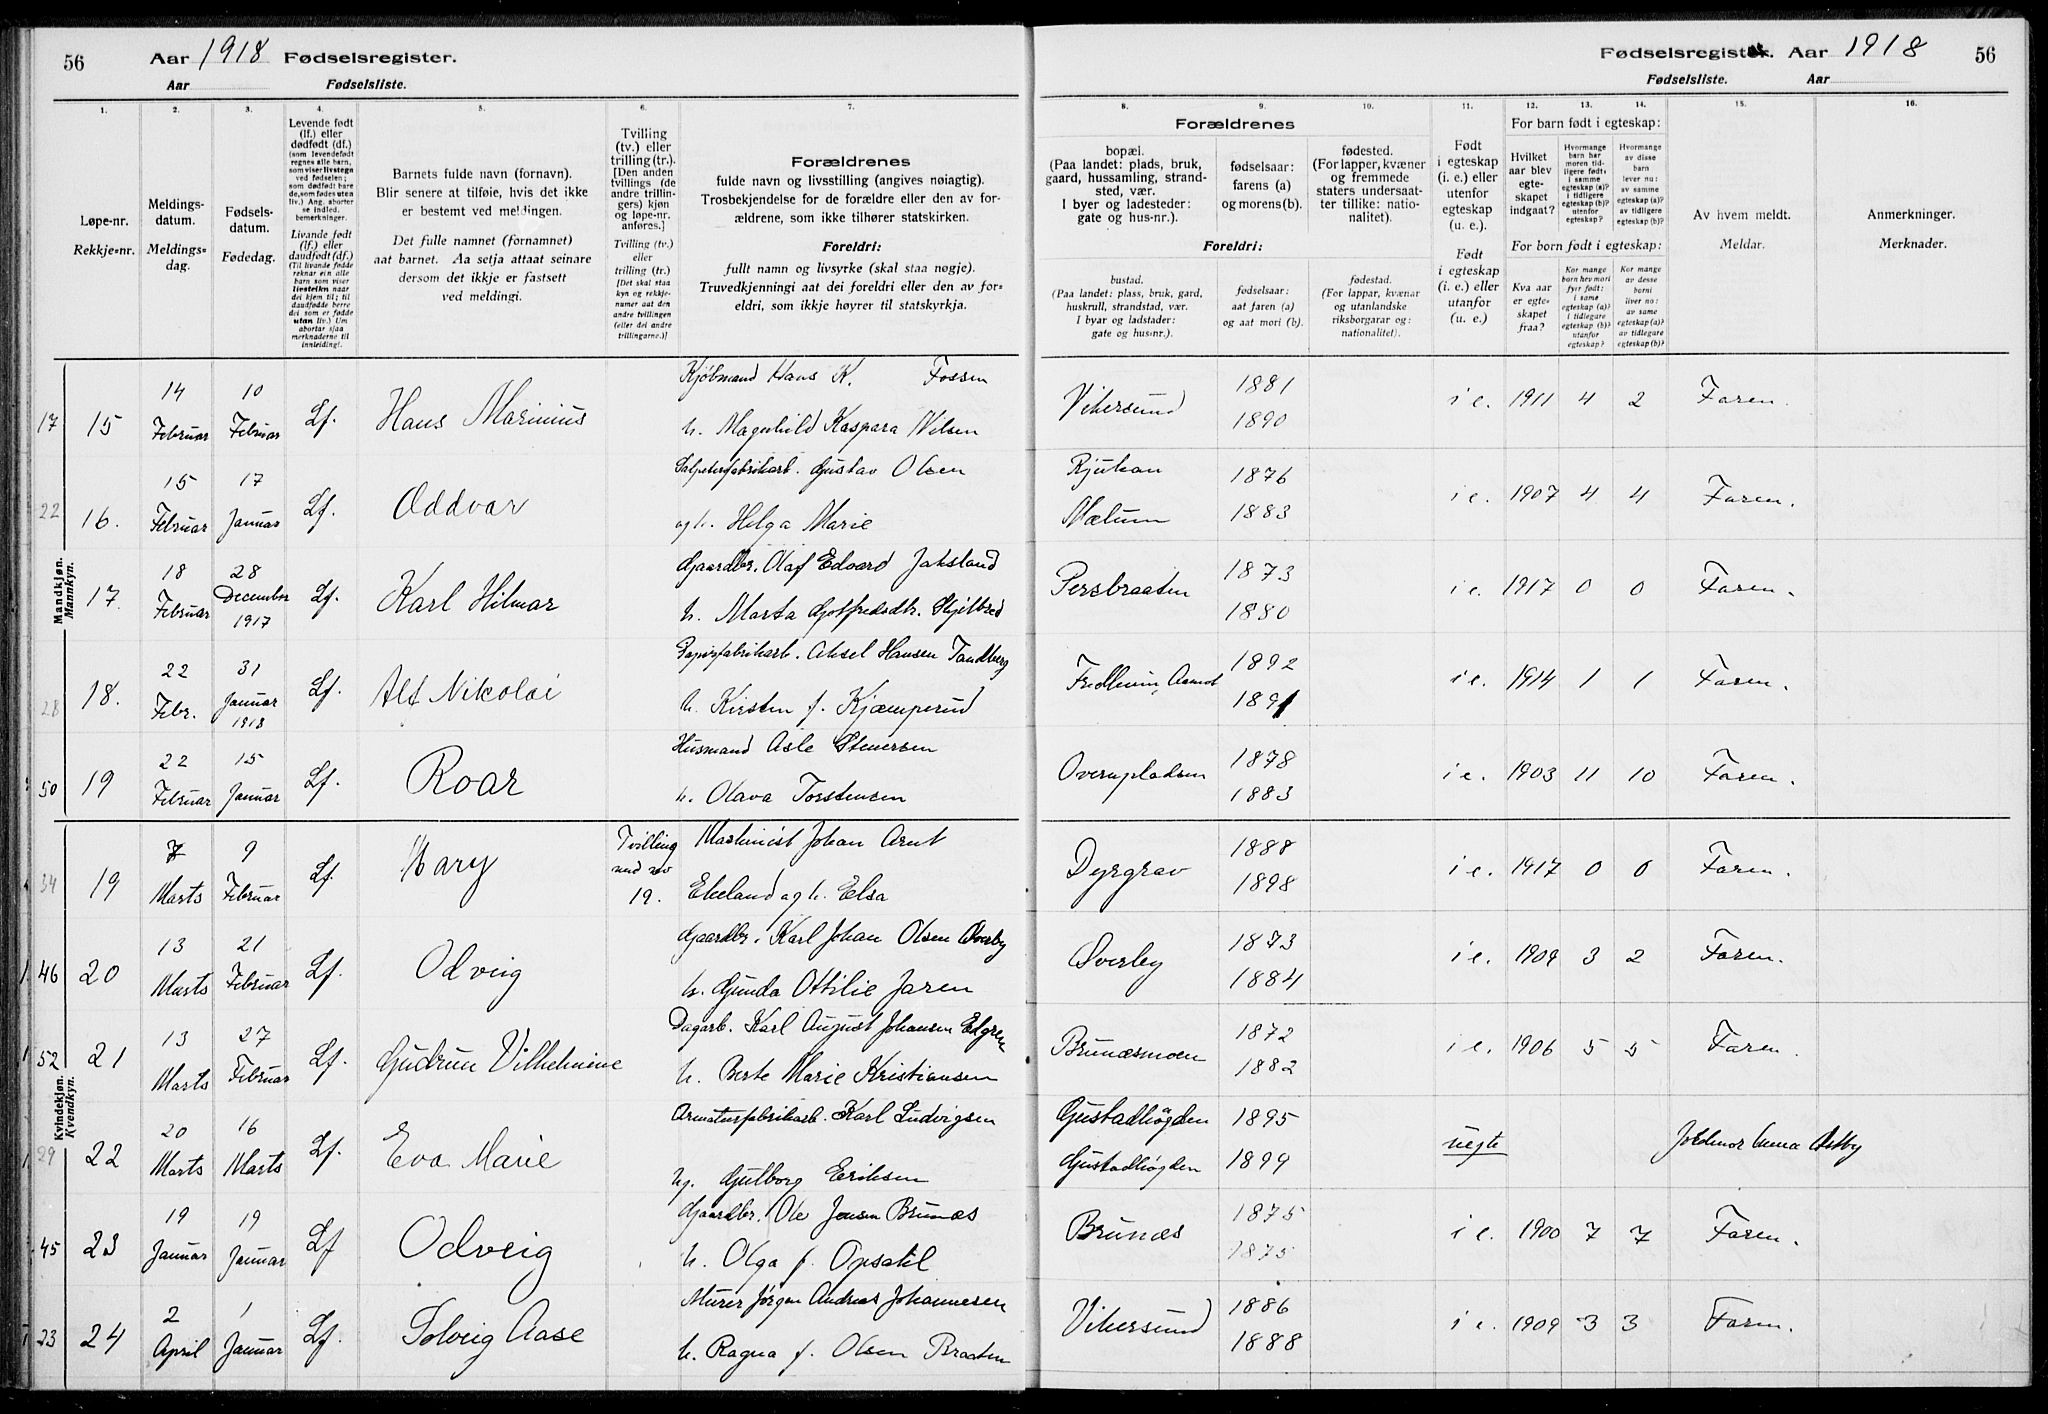 56 Aar 1918 Fødselsregister.
Aar Fødselsliste.
Fødselsregister. Aar 1918 56
Fødselsliste. Aar
1. 2. 3. 4. 5. 6. 7. 8. 9. 10. 11. 12. 13. 14. 15. 16.
Løpe-nr.
Rekkje-nr.
Meldings-
datum.
Meldings-
dag.
Fødsels-
datum.
Fødedag.
Levende født
(lf.) eller
dødfødt (df.)
(som levendefødt
regnes alle barn,
som viser livstegn
ved fødselen;
som dødfødt bare
de, som fødes uten
liv.) Ang. aborter
se indled.
bemerkninger.
Livande født
(lf.) eller
daudfødt (df.)
(Til livande fødde
reknar ein alle
barn som viser
livsteikn naar
dei kjem til; til
daudfødde berre
dei som er fødde
utan liv.) Um
abortar sjaa
merknaderne til
innleiding!.
Barnets fulde navn (fornavn).
Blir senere at tilføie, hvis det ikke
er bestemt ved meldingen.
Det fulle namnet (fornamnet)
aat barnet. Aa setja attaat seinare
dersom det ikkje er fastsett
ved meldingi.
Tvilling
(tv.) eller
trilling (tr.).
[Den anden
tvillings (de
andre trillin-
gers) kjøn
og løpe-nr.
anføres.]
Tvilling (tv.)
eller
trilling (tr.)
[Det skal staa
kyn og rekkje-
numer aat den
andre tvillingen
(eller dei andre
trillingarne.)]
Forældrenes
fulde navn og livsstilling (angives nøiagtig).
Trosbekjendelse for de forældre eller den av for-
ældrene, som ikke tilhører statskirken.
Foreldri:
fullt namn og livsyrke (skal staa nøgje).
Truvedkjenningi aat dei foreldri eller den av for-
eldri, som ikkje høyrer til statskyrkja.
Forældrenes
bopæl.
(Paa landet: plads, bruk,
gaard, hussamling, strand-
sted, vær.
I byer og ladesteder:
gate og hus-nr.).
fødselsaar:
farens (a)
og morens (b).
fødested.
(For lapper, kvæner
og fremmede
staters undersaat-
ter tillike: natio-
nalitet).
Foreldri:
bustad.
(Paa landet: plass, bruk, gard,
huskrull, strandstad, vær.
I byar og ladstader:
gate og hus-nr.).
fødselsaar:
aat faren (a)
og aat mori (b).
fødestad.
(For lappar, kvænar
og utanlandske
riksborgarar og:
nationalitet).
Født
i egteskap
(i. e.) eller
utenfor
egteskap
(u. e.).
Født
i egteskap
(i. e.) eller
utanfor
(u. e.)
For barn født i egteskap:
Hvilket
aar blev
egte-
skapet
indgaat?
Hvormange
barn har
moren tid-
ligere født:
i samme
egteskap (a)?
i tidligere
egteskap (b)?
utenfor
egteskap?
Hvormange
av disse
barn
lever nu:
av samme
egteskap (a)?
av tidligere
egteskap (b)?
For born født i egteskap:
Kva aar
er egte-
skapet
fraa?
Kor mange
barn hev mori
fyrr født:
i same
egteskap (a)?
i tidlegare
egteskap (b)?
utanfor
egteskap?
Kor mange
av desse
borni
liver no:
av same
egteskap (a)?
av tidlegare
egteskap (b)?
Av hvem meldt.
Meldar.
Anmerkninger.
Merknader.
Mandkjøn.
Mannkyn.
17 15 14 Februar 10 Februar Lf. Hans Marinius Kjøbmand Hans K. Fossen
h. Magnhild Kaspara Nilsen Vikersund 1881 1890 i e. 1911 4 2 Faren.
22 16. 15 Februar 17 Januar Lf. Oddvar Salpeterfabrikarb. Gustav Olsen
og h. Helga Marie Rjukan Mælum 1876 1883 i e. 1907 4 4 Faren.
17. 18 Februar 28 December 1917 Lf. Karl Hilmar Gaardbr. Olaf Edvard Jaksland
h. Marta Gotfredsdtr. Skjelbred Persbraaten 1873 1880 i e. 1917 0 0 Faren.
28 18. 22 Febr. 31 Januar 1918 Lf. Alf Nikolai Papirfabrikarb. Aksel Hansen Tandberg
h. Kirsten f. Kjæmperud Fredheim, Aamot 1892 1891 i e. 1914 1 1 Faren.
50 19 22 Februar 15 Januar Lf. Roar Husmand Asle Stenersen
h. Olava Torstensen Overnpladsen 1878 1883 i e. 1903 11 10 Faren.
Kvindekjøn.
Kvendkyn.
34 19 7 Marts 9 Februar Lf. Mary Tvilling med no 19. Maskinist Johan Arnt
Ekeland og h. Elsa Dyrgrav 1888 1898 i e. 1917 0 0 Faren.
46 20 13 Marts 21 Februar Lf. Odveig Gaardbr. Karl Johan Olsen Øverby
h. Gunda Ottilie Jaren Øverby 1873 1884 i e. 1909 3 2 Faren.
52 21 13 Marts 27 Februar Lf. Gudrun Vilhelmine Dagarb. Karl August Johansen Elgren
h. Berte Marie Kristiansen Brunæsmoen 1872 1882 i e. 1906 5 5 Faren.
29 22 20 Marts 16 Marts Lf. Eva Marie Armaturfabrikarb. Karl Ludvigsen
Gulborg Eriksen Gustadhøgden Gustadhøgden 1895 1899 uegte Jordmor Anna Østby
45 23 19 Januar 19 Januar Lf Odveig Gaardbr. Ole Jensen Brunæs
h. Olga f. Opsahl Brunæs 1875 1875 i e. 1900 7 7 Faren.
23 24 2 April 1 Januar Lf. Solveig Aase Murer Jørgen Andreas Johannesen
h. Ragna f. Olsen Braaten Vikersund 1886 1888 i e. 1909 3 3 Faren.